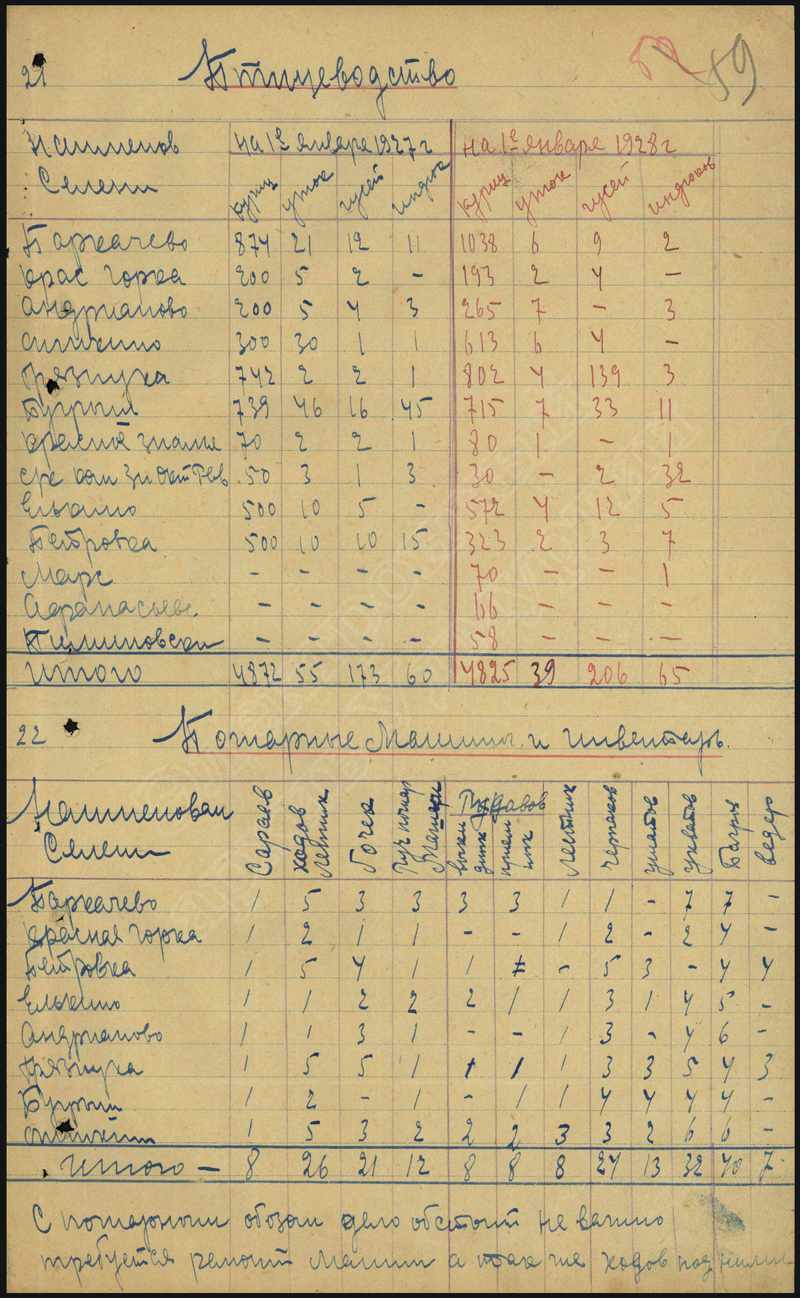 21 Птицеводство 59
Наименов на 1е января 1927 г на 1е января 1928 г
Селени куриц уток гусей индюк куриц уток гусей индюков
Паркачево 874 21 12 11 1038 6 9 2
Крас горка 200 5 2 - 193 2 4 -
Андрианово 200 5 4 3 265 7 - 3
300 30 1 1 613 6 4 -
Грязнуха 742 2 2 1 802 4 139 3
Бугрыш 739 46 16 45 715 7 33 11
Красное знамя 70 2 2 1 80 1 - 1
50 3 1 3 30 - 2 32
Елькино 500 10 5 - 572 4 12 5
Петровка 500 10 10 15 323 2 3 7
Марс - - - - 70 - - 1
- - - - 66 - - -
- - - - 58 - - -
Итого 4872 55 173 60 4825 39 206 65
22 Пожарные Машины и инвентарь.
Наименован Сараев Ходов Бочек Руч пожар Рукавов Лестник Черпаков ушатов ухватов Багры ведер
Селени Летник Машин выки дник прием ник
Паркачево 1 5 3 3 3 3 1 1 - 7 7 -
Красная горка 1 2 1 1 - - 1 2 - 2 4 -
Петровка 1 5 4 1 1 - 5 3 - 4 4
Елькино 1 1 2 2 2 1 1 3 1 4 5 -
Андрианово 1 1 3 1 - - 1 3 - 4 6 -
Грязнуха 1 5 5 1 1 1 1 3 3 5 4 3
Бугрыш 1 2 - 1 - 1 1 4 4 4 4 -
1 5 3 2 2 2 3 3 2 6 6 -
Итого - 8 26 21 12 8 8 8 24 13 32 40 7
С пожарным обозом дело обстоит не важно
требуется ремонт машин а так же ходов под ними